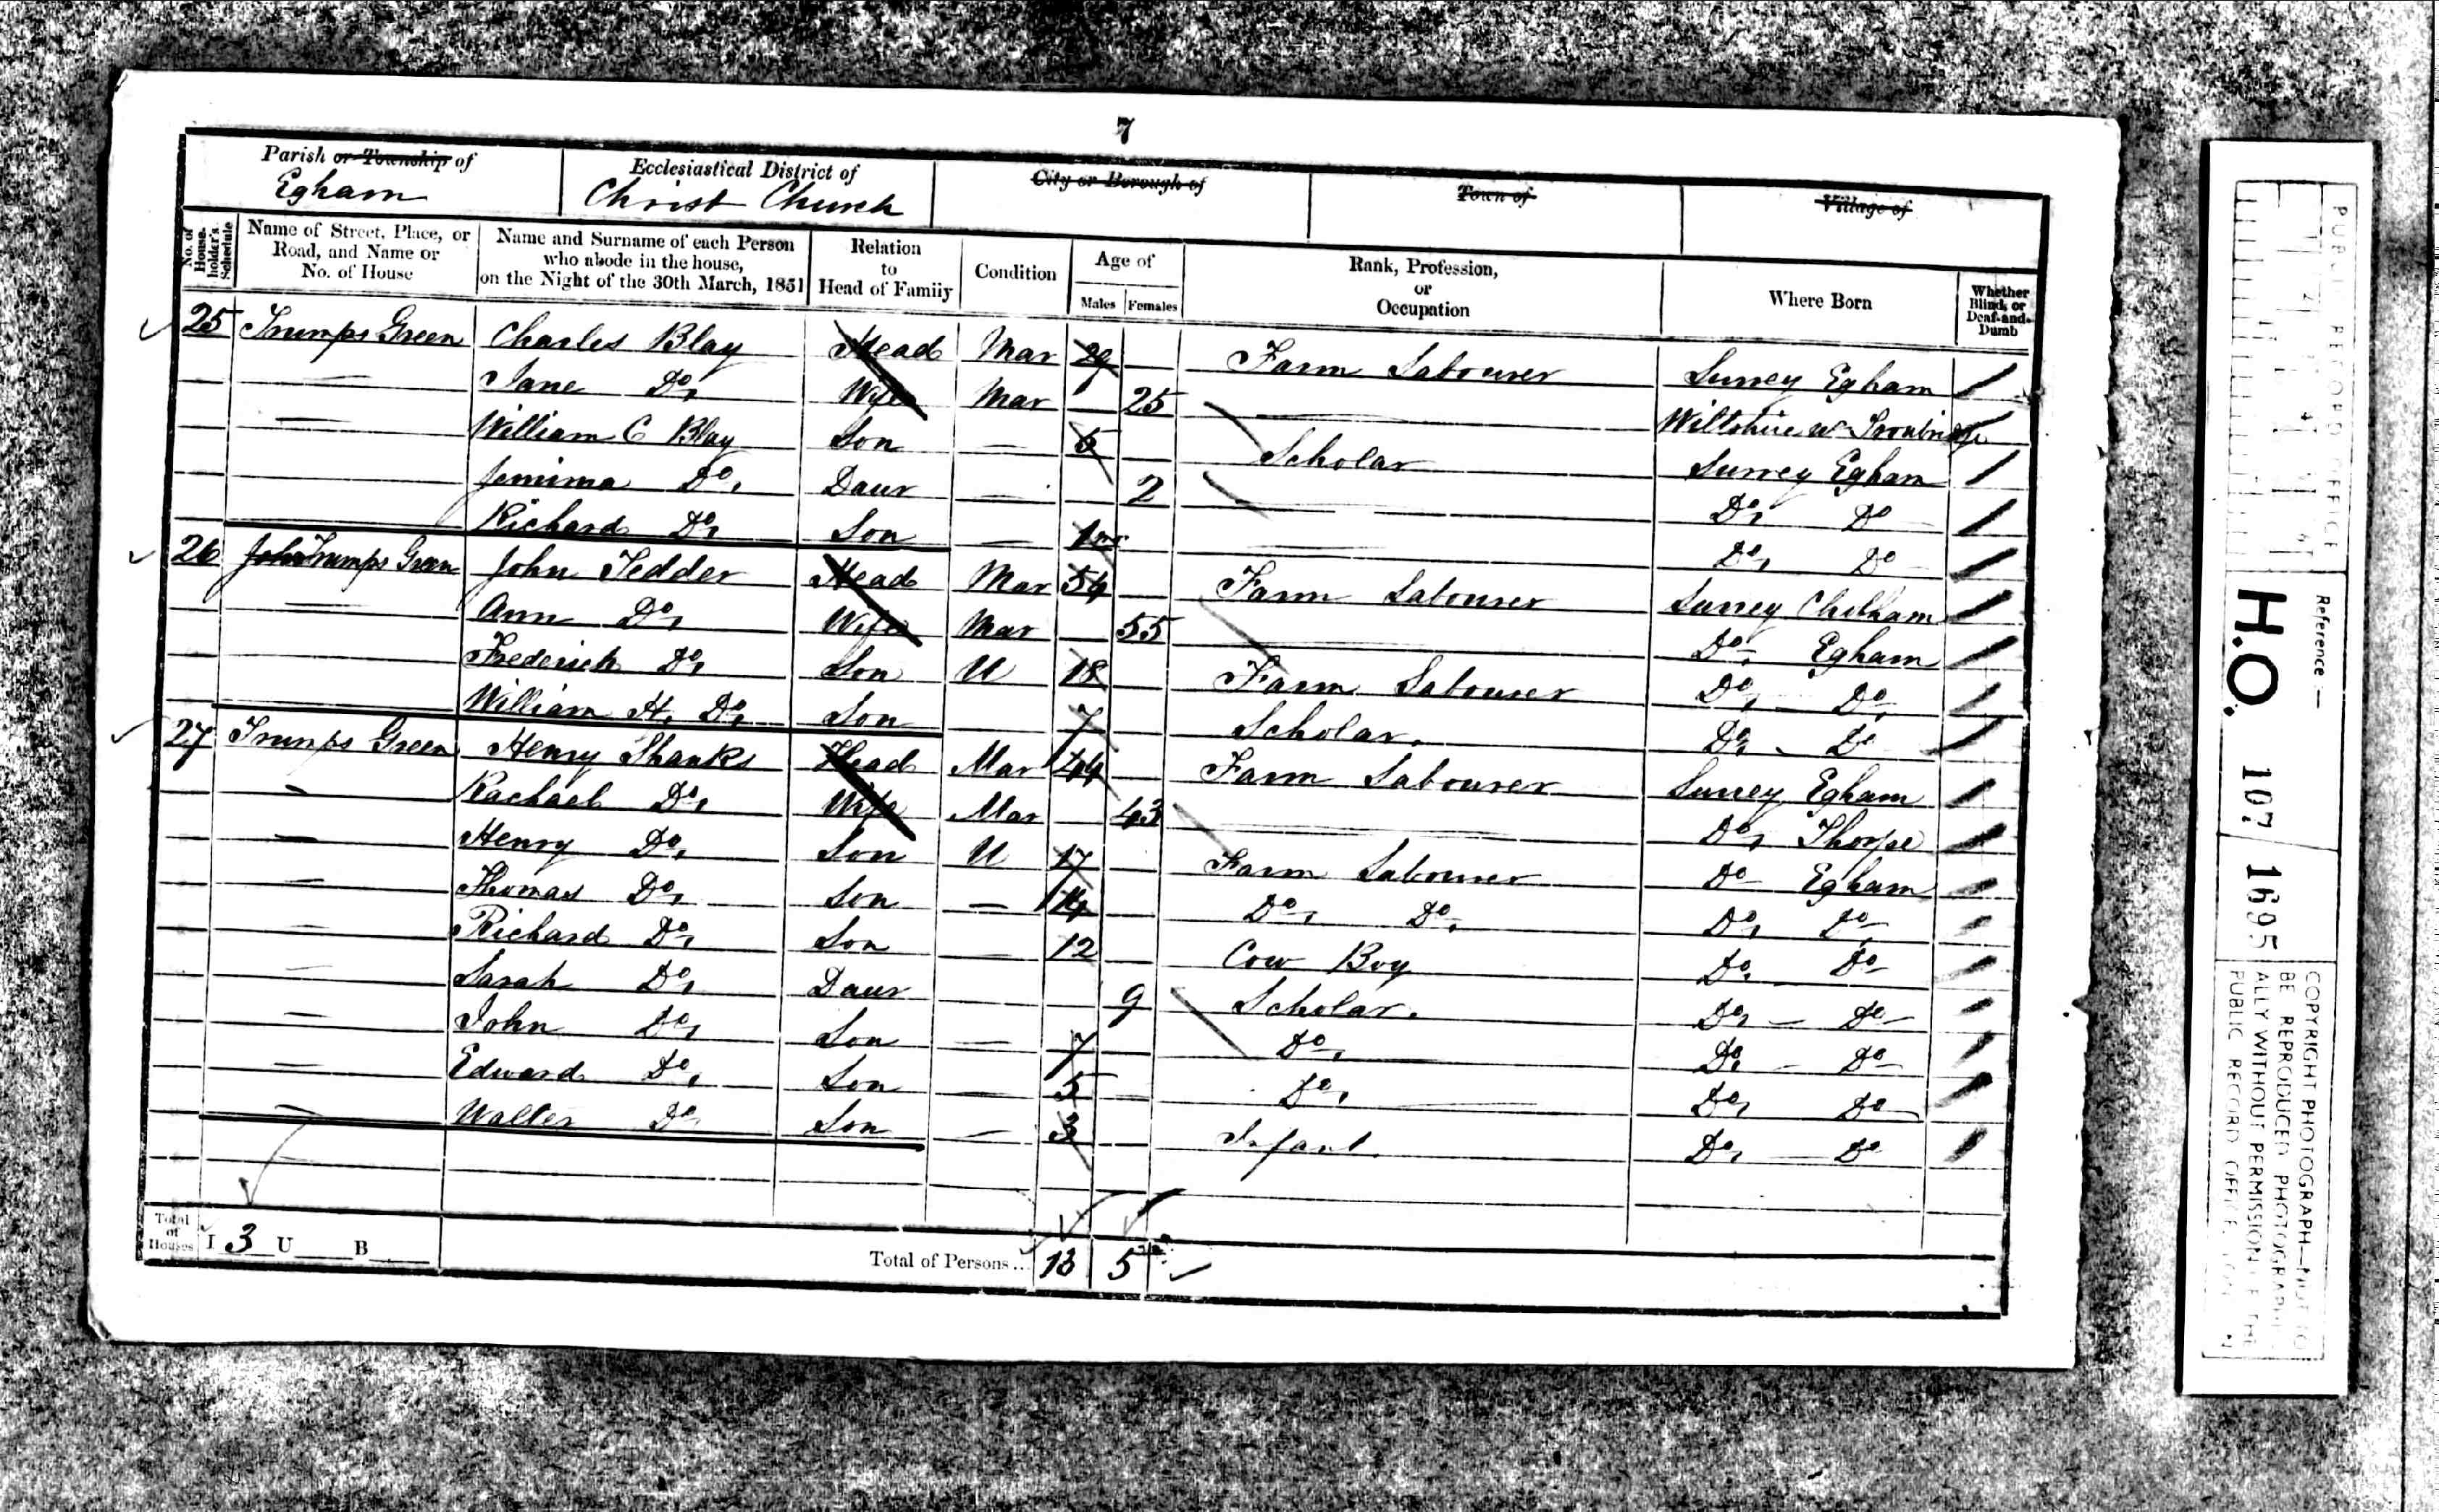 7
Parish or Township of
Egham
Ecclesiastical District of
Christ Church
City or Borough of
Town of
Village of
No. of House-holder's Schedule
Name of Street, Place, or Road, and Name or No. of House
Name and Surname of each Person who abode in the house, on the Night of the 30th March, 1851
Relation to Head of Family
Condition
Age of
Males Females
Rank, Profession, or Occupation
Where Born
Whether Blind, or Deaf-and-Dumb
25 Trumps Green Charles Blay Head Mar 29 Farm Labourer Surrey Egham
Jane Do, Wife Mar 25 Wiltshire
William C Blay Son — 5 Scholar Surrey Egham
Jemima Do, Daur — 2 Do, Do
Richard Do, Son — 1 mo Do, Do
26 John Trumps Green John Tedder Head Mar 54 Farm Labourer Surrey
Ann Do, Wife Mar 55 Do, Egham
Frederick Do, Son U 18 Farm Labourer Do, Do,
William H. Do, Son 7 Scholar. Do, Do
27 Trumps Green Henry Shanks Head Mar 44 Farm Labourer Surrey Egham
Rachael Do, Wife Mar 43 Do, Thorpe
Henry Do, Son U 17 Farm Labourer Do Egham
Thomas Do, Son — 14 Do, Do, Do, Do,
Richard Do, Son — 12 Cow Boy Do, Do
Sarah Do, Daur 9 Scholar. Do, Do
John Do, Son — 7 Do, Do, Do
Edward Do, Son — 5 Do, Do, Do
Walter Do, Son — 3 Infant Do, Do
Total of Houses I 3 U B
Total of Persons... 13 5
PUBLIC RECORD OFFICE
Reference :—
H.O. 107 / 1695
COPYRIGHT PHOTOGRAPH—NOT TO
BE REPRODUCED PHOTOGRAPHIC-
ALLY WITHOUT PERMISSION OF THE
PUBLIC RECORD OFFICE,